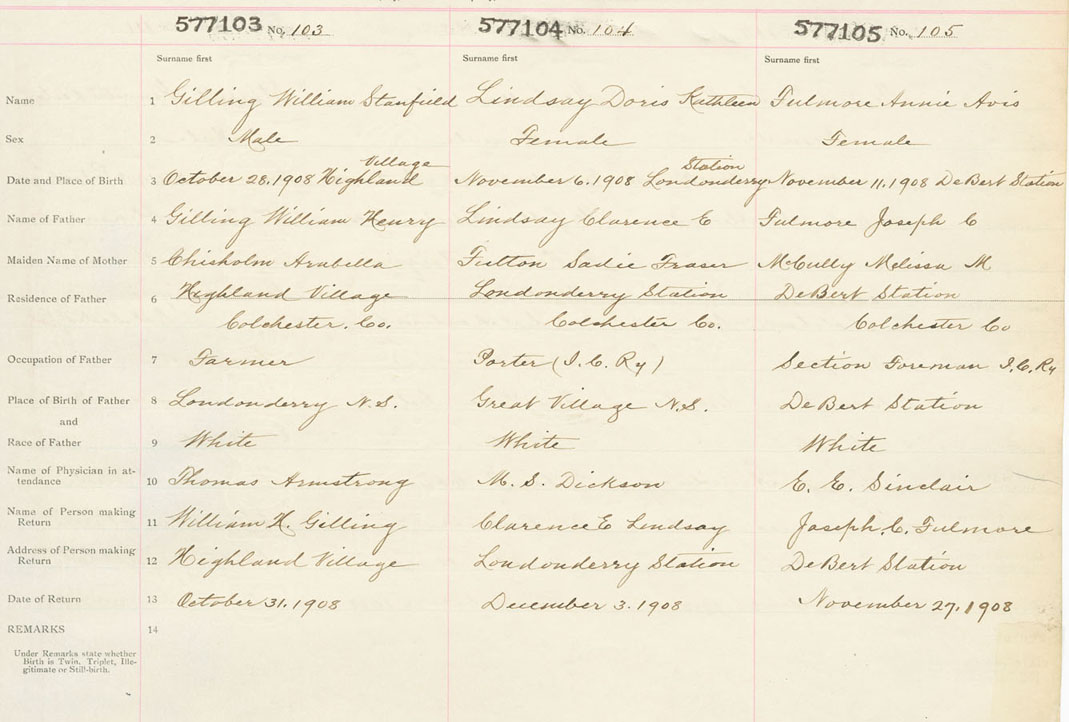 577103 No. 103 577104 No. 104 577105 No. 105
Surname first Surname first Surname first
Name 1 Gilling William Stanfield Lindsay Doris Kathleen Fulmore Annie Avis
Sex 2 Male Female Female
Village Station
Date and Place of Birth 3 October 28, 1908 Highland November 6, 1908 Londonderry November 11, 1908 DeBert Station
Name of Father 4 Gilling William Henry Lindsay Clarence E Fulmore Joseph C
Maiden Name of Mother 5 Chisholm Arabella Fulton Sadie Fraser McCully Melissa M
Residence of Father 6 Highland Village Londonderry Station DeBert Station
Colchester. Co. Colchester Co. Colchester Co
Occupation of Father 7 Farmer Porter (I. C. Ry) Section Foreman I. C. Ry
Place of Birth of Father 8 Londonderry N.S. Great Village N.S. DeBert Station
and
Race of Father 9 White White White
Name of Physician in at-
tendance 10 Thomas Armstrong M. S. Dickson E. E. Sinclair
Name of Person making
Return 11 William H. Gilling Clarence E Lindsay Joseph. C. Fulmore
Address of Person making
Return 12 Highland Village Londonderry Station DeBert Station
Date of Return 13 October 31, 1908 December 3, 1908 November 27, 1908
REMARKS 14
Under Remarks state whether
Birth is Twin. Triplet, Ille-
gitimate or Still-birth.